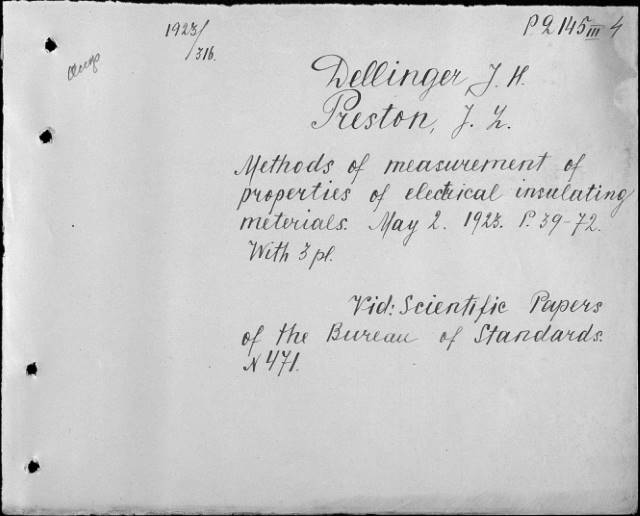 1923/316.
P2145III 4
Dellinger, J. H.
Preston, J. L.
Methods of measurement of
properties of electrical insulating
meterials. May 2. 1923. P. 39-72.
With 3 pl.
Vid: Scientific Papers
of the Bureau of Standards.
N 471.